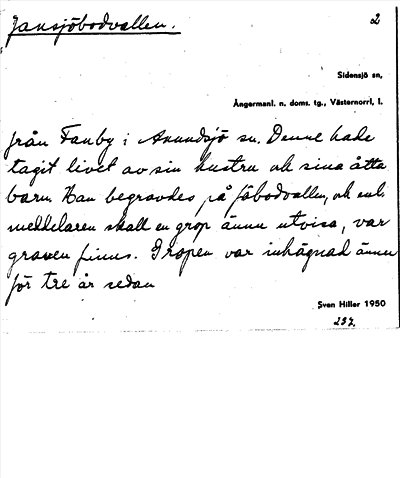 Jansjöbodvallen. 2
Sidensjö sn,
Ångermanl. n. doms. tg., Västernorrl. l.
från Tanby i Anundsjö sn. Denne hade
tagit livet av sin hustru och sina åtta
barn. Han begravdes på fäbodvallen, och enl.
meddelaren skall en grop ännu utvisa, var
graven finns. Gropen var inhägnad ännu
för tre år sedan
Sven Hiller 1950
237.